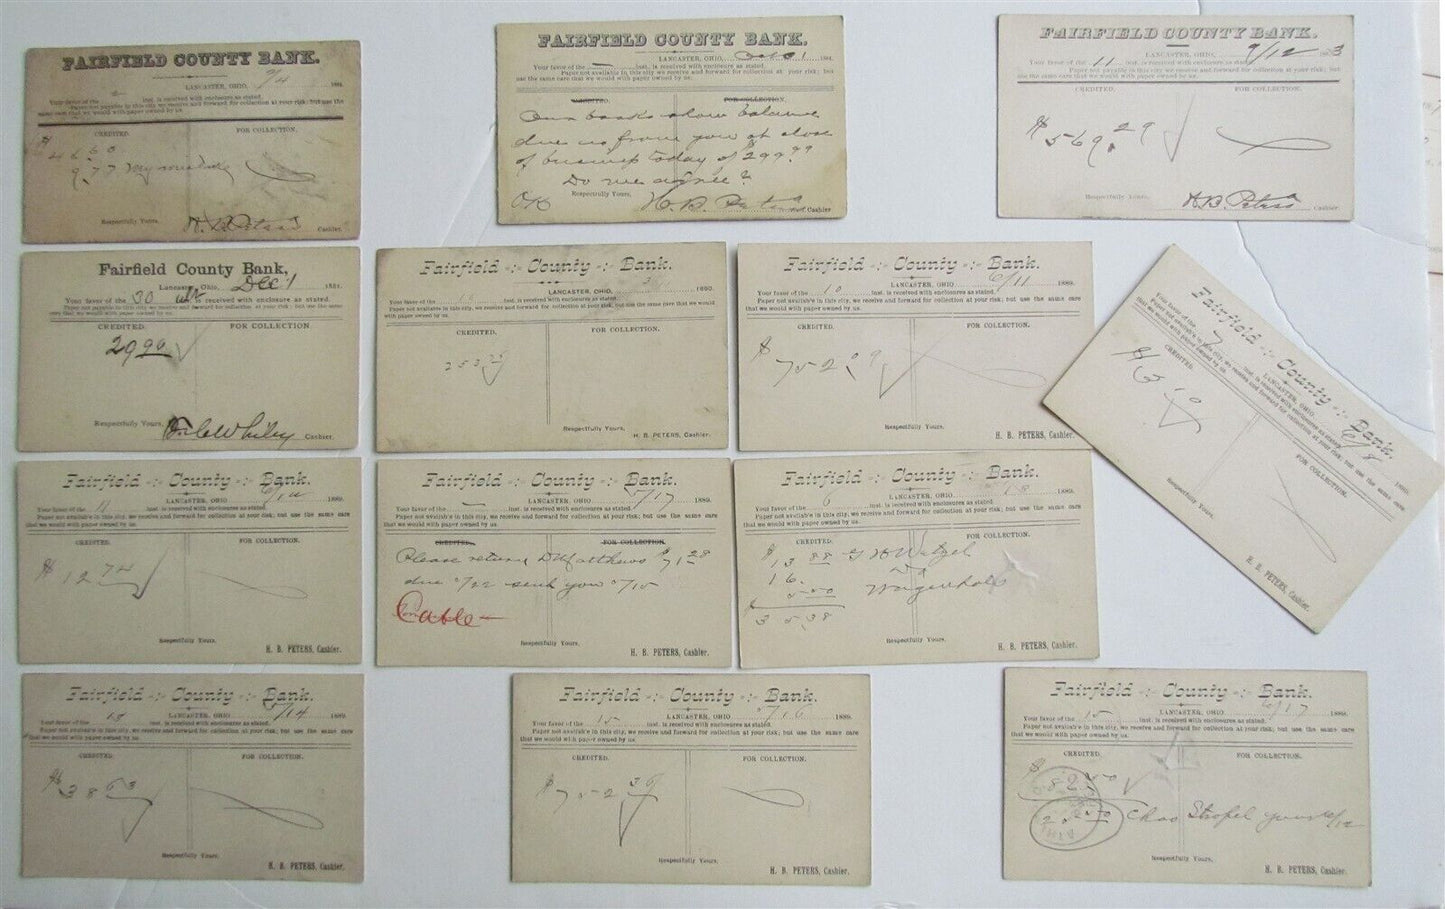 FAIRFIELD COUNTY BANK.
LANCASTER, OHIO, 9/4 188
Your favor of the 2 inst. is received with enclosure as stated.
Paper not payable in this city we receive and forward for collection at your risk; but use the
same care that we would with paper owned by us.
CREDITED. FOR COLLECTION.
$
9.77
Respectfully Yours,
H. B. Peters Cashier.
FAIRFIELD COUNTY BANK.
LANCASTER, OHIO, 188
Your favor of the — inst. is received with enclosure as stated.
Paper not available in this city we receive and forward for collection at your risk; but
use the same care that we would with paper owned by us.
CREDITED. FOR COLLECTION.
Our books show balance
due us from you at close
of business today of $299.99
Do we agree?
Respectfully Yours,
OK H. B. Peters Cashier
FAIRFIELD COUNTY BANK.
LANCASTER, OHIO, 9/12 1883
Your favor of the 11 inst. is received with enclosure as stated.
Paper not available in this city we receive and forward for collection at your risk; but
use the same care that we would with paper owned by us.
CREDITED. FOR COLLECTION.
$569.29
Respectfully Yours,
H. B. Peters Cashier.
Fairfield County Bank,
Lancaster, Ohio, Dec 1 1881.
Your favor of the 30 ult is received with enclosure as stated.
Paper not available in this city, we receive and forward for collection at your risk; but use the same
care that we would with paper owned by us.
CREDITED. FOR COLLECTION
29.99
Respectfully Yours,
Cashier.
Fairfield -:- County -:- Bank.
LANCASTER, OHIO, 1890.
Your favor of the inst. is received with enclosure as stated.
Paper not available in this city, we receive and forward for collection at your risk; but use the same care that we would
with paper owned by us.
CREDITED. FOR COLLECTION.
253.25
Respectfully Yours,
H. B. PETERS, Cashier.
Fairfield -:- County -:- Bank.
LANCASTER, OHIO 6/11 1889.
Your favor of the 10 inst. is received with enclosure as stated.
Paper not available in this city, we receive and forward for collection at your risk; but use the same care
that we would with paper owned by us.
CREDITED. FOR COLLECTION.
$752.09
Respectfully Yours,
H. B. PETERS, Cashier.
Fairfield -:- County -:- Bank.
LANCASTER, OHIO 6/8 1889.
Your favor of the 7 inst. is received with enclosure as stated
Paper not available in this city, we receive and forward for collection at your risk; but use the same care
that we would with paper owned by us.
CREDITED. FOR COLLECTION.
Respectfully Yours,
H. B. PETERS, Cashier.
Fairfield -:- County -:- Bank.
LANCASTER, OHIO 1889.
Your favor of the 11 inst. is received with enclosure as stated.
Paper not available in this city, we receive and forward for collection at your risk; but use the same care
that we would with paper owned by us.
CREDITED. FOR COLLECTION.
$12 74
Respectfully Yours,
H. B. PETERS, Cashier.
Fairfield -:- County -:- Bank.
LANCASTER, OHIO 5/17 1889.
Your favor of the — inst. is received with enclosure as stated
Paper not available in this city, we receive and forward for collection at your risk; but use the same care
that we would with paper owned by us.
CREDITED. FOR COLLECTION.
Please return D Matthews $71.28
due 5/22 sent you 5/15
Cable
Respectfully Yours,
H. B. PETERS, Cashier.
Fairfield -:- County -:- Bank.
LANCASTER, OHIO 1889.
Your favor of the 6 inst. is received with enclosure as stated
Paper not available in this city, we receive and forward for collection at your risk; but use the same care
that we would with paper owned by us.
CREDITED. FOR COLLECTION.
$13.88 G W Wetzel
16.
5.50 Wagenhals
35.38
Respectfully Yours,
H. B. PETERS, Cashier.
Fairfield -:- County -:- Bank.
LANCASTER, OHIO 5/14 1889.
Your favor of the 13 inst. is received with enclosure as stated.
Paper not available in this city, we receive and forward for collection at your risk; but use the same care
that we would with paper owned by us.
CREDITED. FOR COLLECTION.
$38 63
Respectfully Yours,
H. B. PETERS, Cashier.
Fairfield -:- County -:- Bank.
LANCASTER, OHIO 5/16 1889.
Your favor of the 15 inst. is received with enclosure as stated.
Paper not available in this city, we receive and forward for collection at your risk; but use the same care
that we would with paper owned by us.
CREDITED. FOR COLLECTION.
$752 36
Respectfully Yours,
H. B. PETERS, Cashier.
Fairfield -:- County -:- Bank.
LANCASTER, OHIO 6/17 1889.
Your favor of the 15 inst. is received with enclosure as stated.
Paper not available in this city, we receive and forward for collection at your risk; but use the same care
that we would with paper owned by us.
CREDITED. FOR COLLECTION.
$82.50
2.50 Chas Strofel yours 6/12
Respectfully Yours,
H. B. PETERS, Cashier.